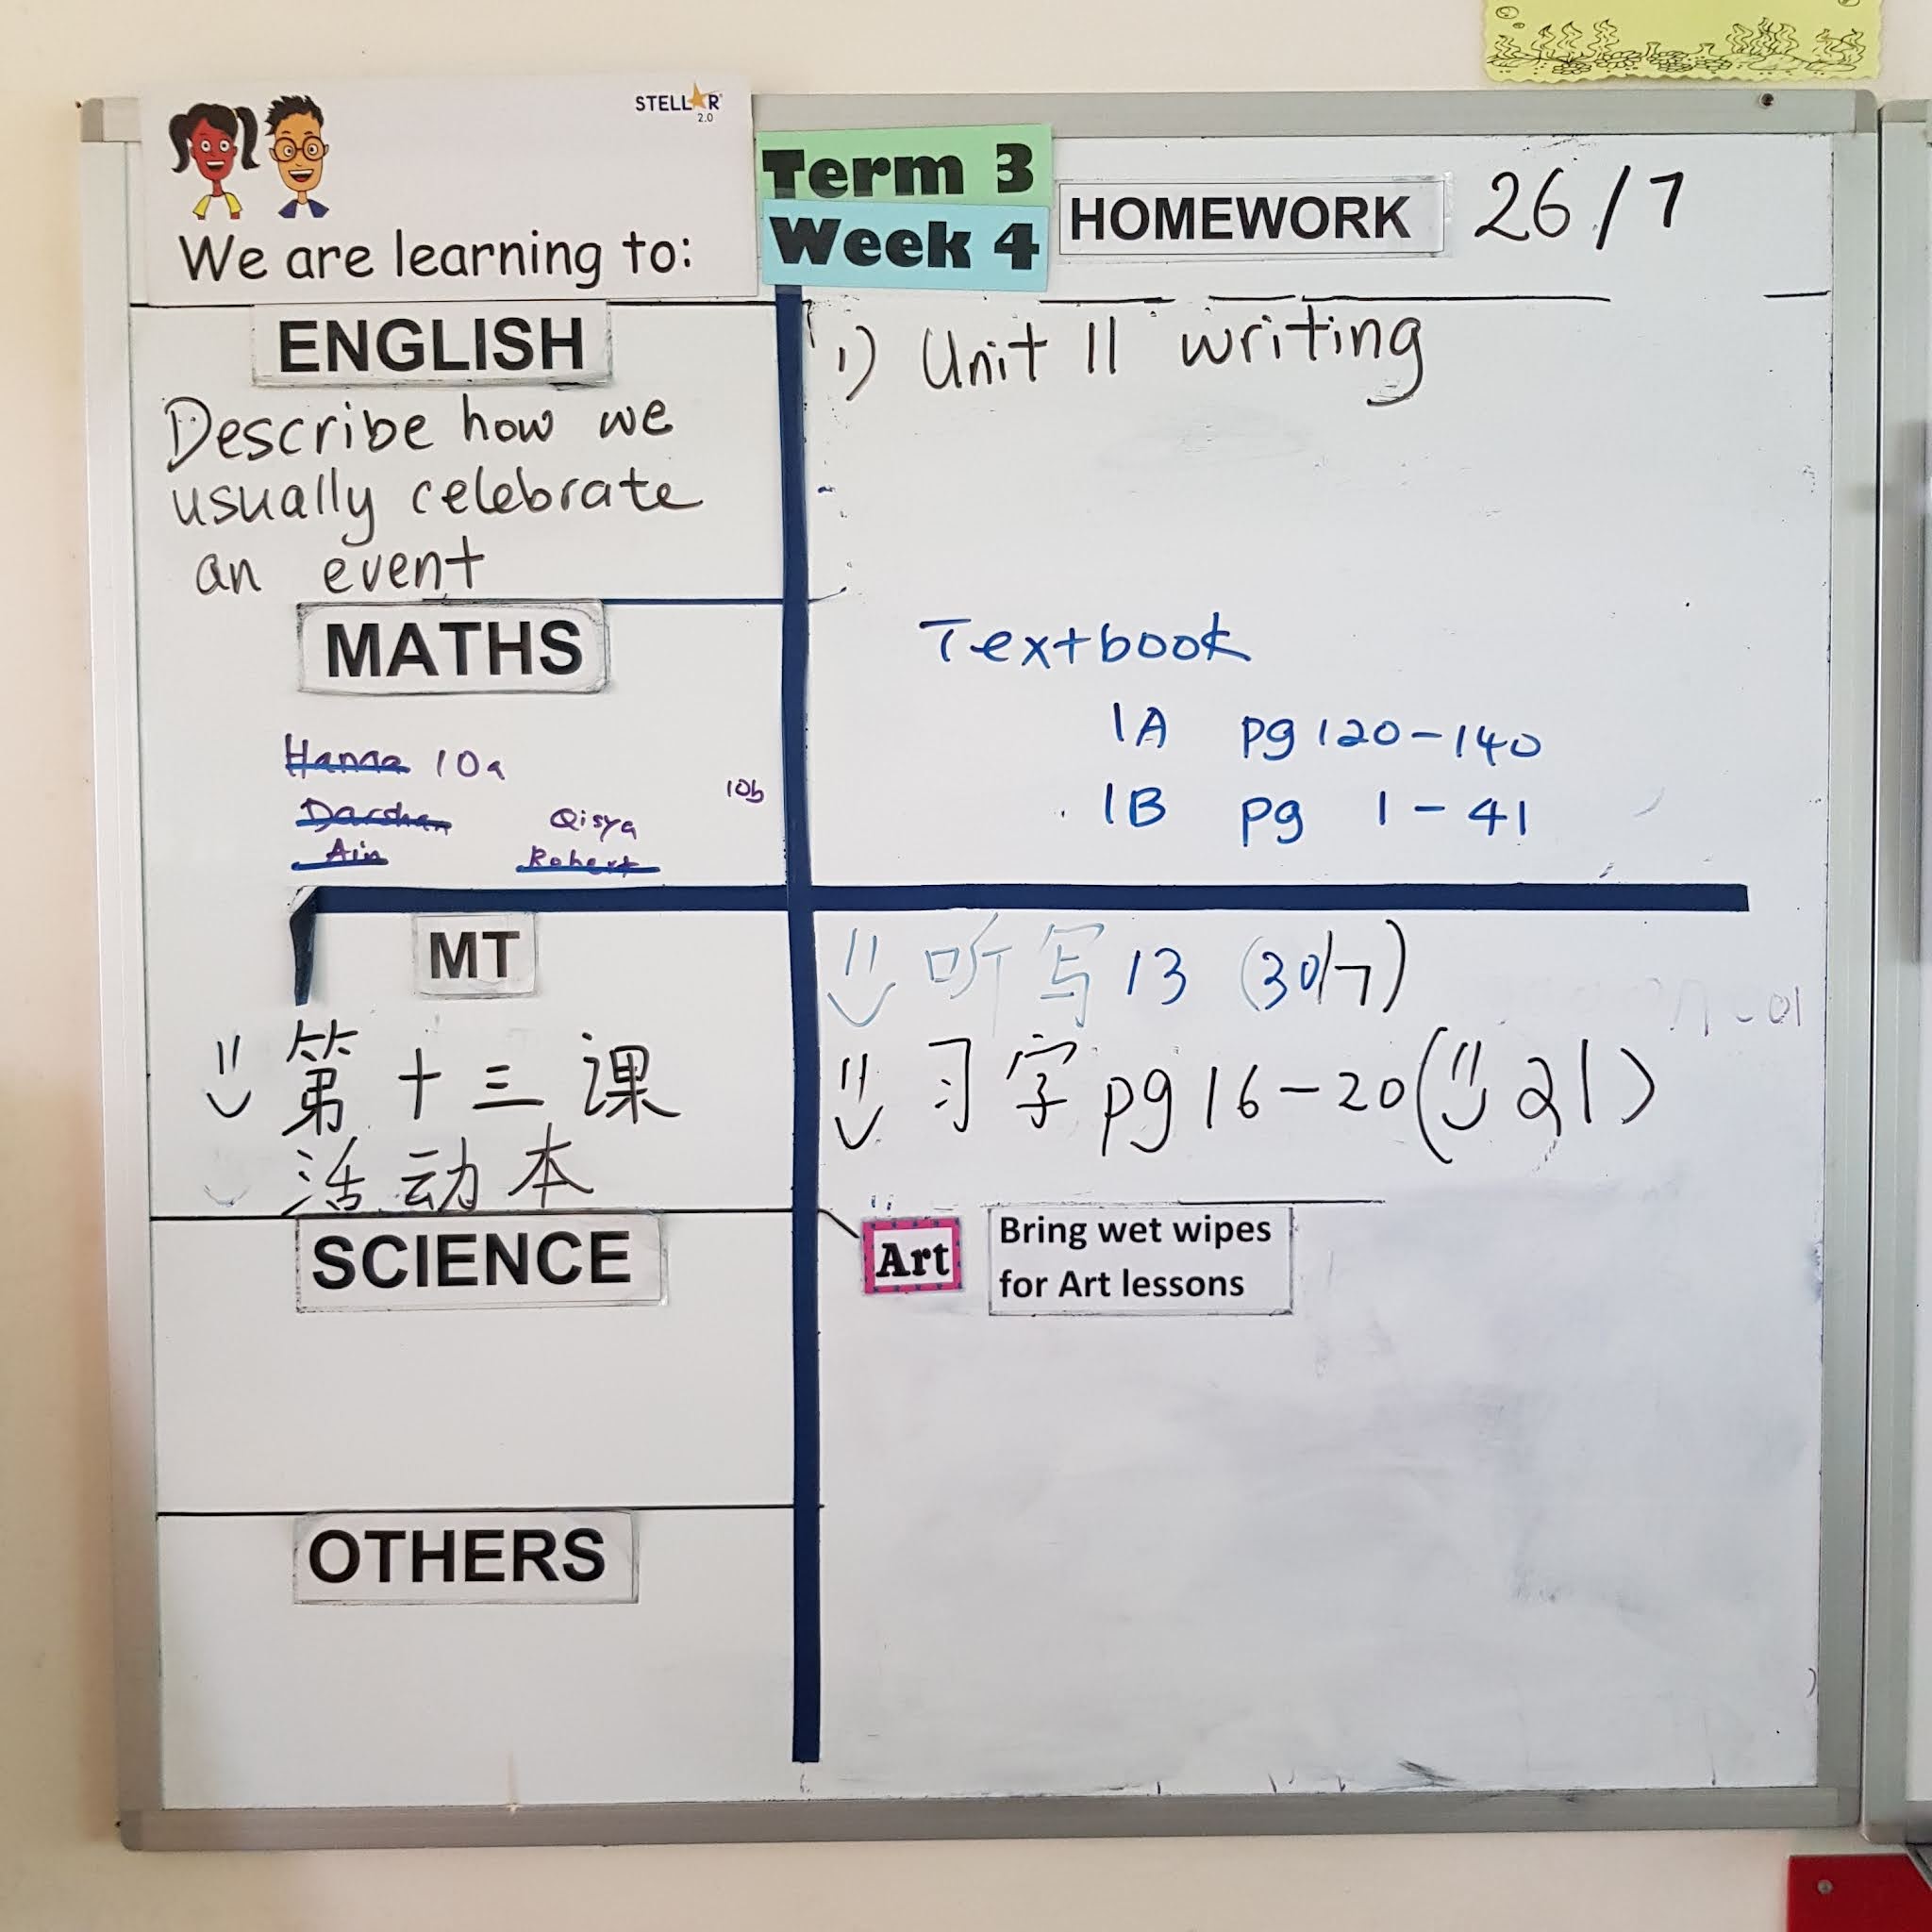 STELLAR 2.0
We are learning to:
Term 3
Week 4
HOMEWORK 26/7
ENGLISH
Describe how we
usually celebrate
an event
1) Unit 11 writing
MATHS
Hanna 10a
10b
Darshan Qisya
Ain Robert
Textbook
1A pg 120-140
1B pg 1-41
MT
第十三课
活动本
听写13 (30/7)
习字 pg 16-20 (21)
SCIENCE
Art
Bring wet wipes
for Art lessons
OTHERS